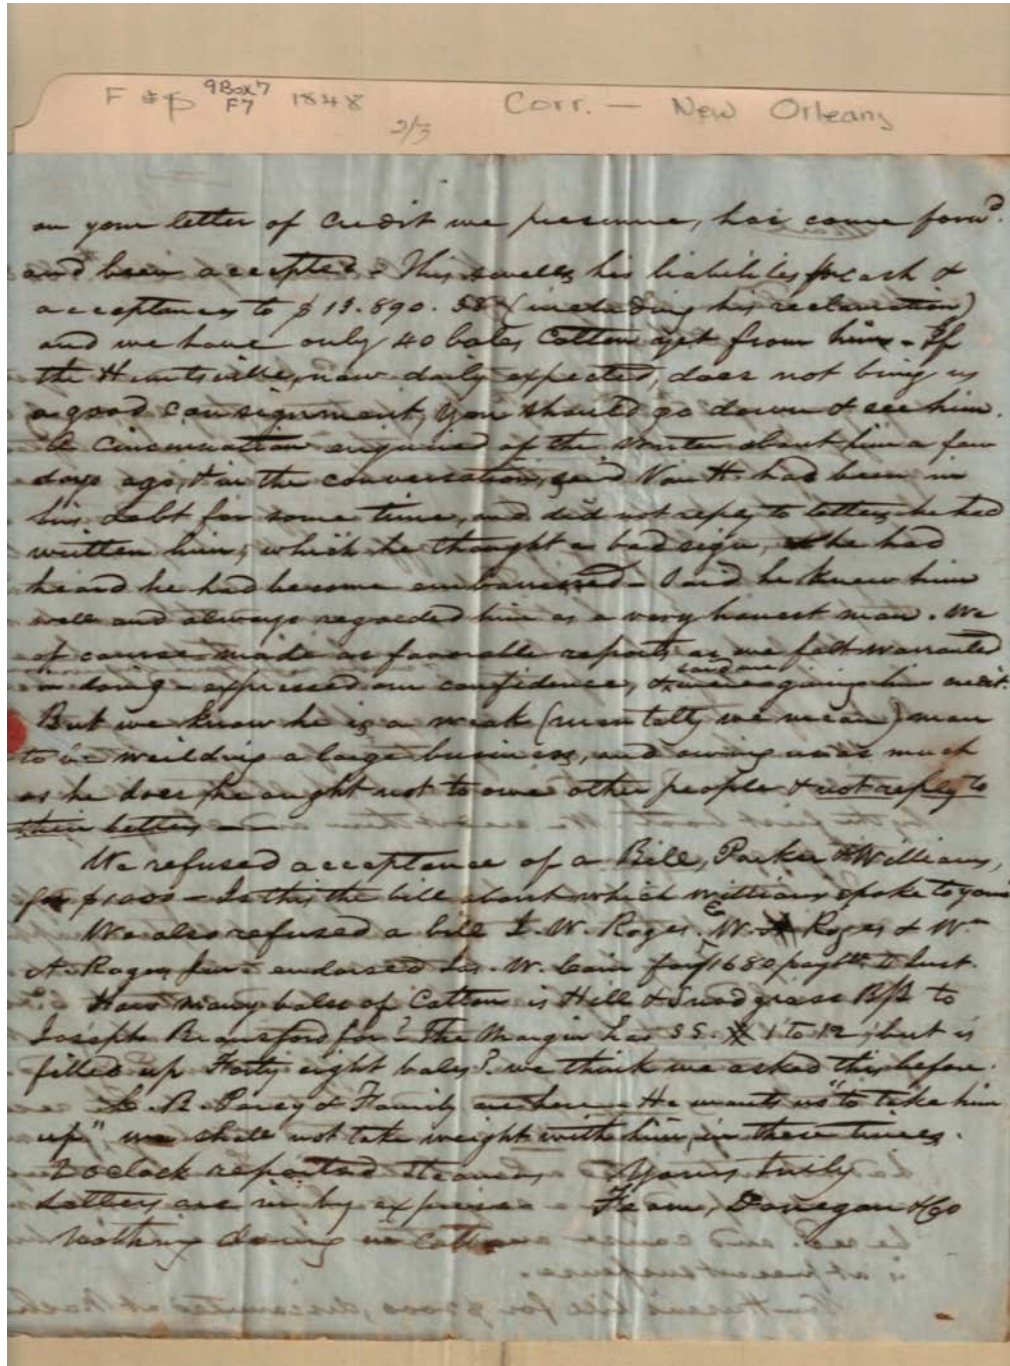 F & P 9Box7 F7 1848 Corr. — New Orleans
2/3
on your letter of Credit we presume, has come forwd.
and been accepted – This swells his liabilities for cash &
acceptances to $13.890.58 (including his reclamation)
and we have only 40 bales Cotton yet from him – If
the Huntsville, now daily expected, does not bring us
a good consignment, you should go down & see him.
A Cincinnatian enquired of the writer about him a few
days ago, & in the conversation, said Van H. had been in
his debt for some time, and did not reply to letters he had
written him, which he thought a bad sign, & he had
heard he had become embarrassed – Said he knew him
well and always regarded him as a very honest man. We
of course made as favorable reports as we felt warranted
in doing – expressed our confidence, & said we were giving him credit.
But we know he is a weak (mentally we mean) man
to be weilding a large business, and owing us as much
as he does, he ought not to owe other people & not reply to
their letters —
We refused acceptance of a Bill, Parker & Williams,
for $1000 – Is this the bill about which Williams spoke to you
We also refused a bill I. W. Roger. E. W. Roger & Wm
A. Roger Junr endorsed Jas. W. Cain for $1680 payble Inst.
How many bales of Cotton is Hill & Snodgrass B/L to
Joseph Bransford for? The Margin has SS. # 1 to 12, but is
filled up Forty eight bales? we think we asked this before.
L. B. & Family are here – He wants us "to take him
up" we shall not take weight with him, in these times.
2 oclock reported Steamers Yours truly
Letters are in by express Fearn, Donegan & Co
Nothing doing in Cotton